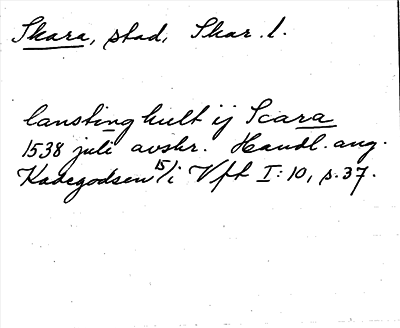 Skara, stad, Skar. l.
lansting hult ij Scara
1538 juli avskr. Handl. ang.
Kadegodsen 15/i Vft I:10, s. 37.